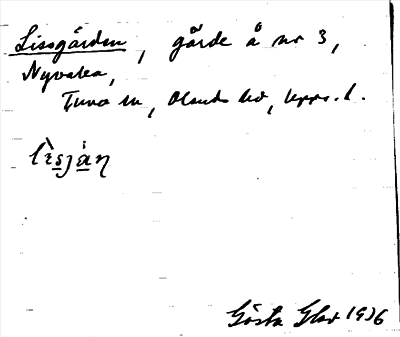 Lissgården, gärde å nr 3,
Nyvalla,
Tuna sn, Olands hd, Upps. l.
Gösta Glas 1936